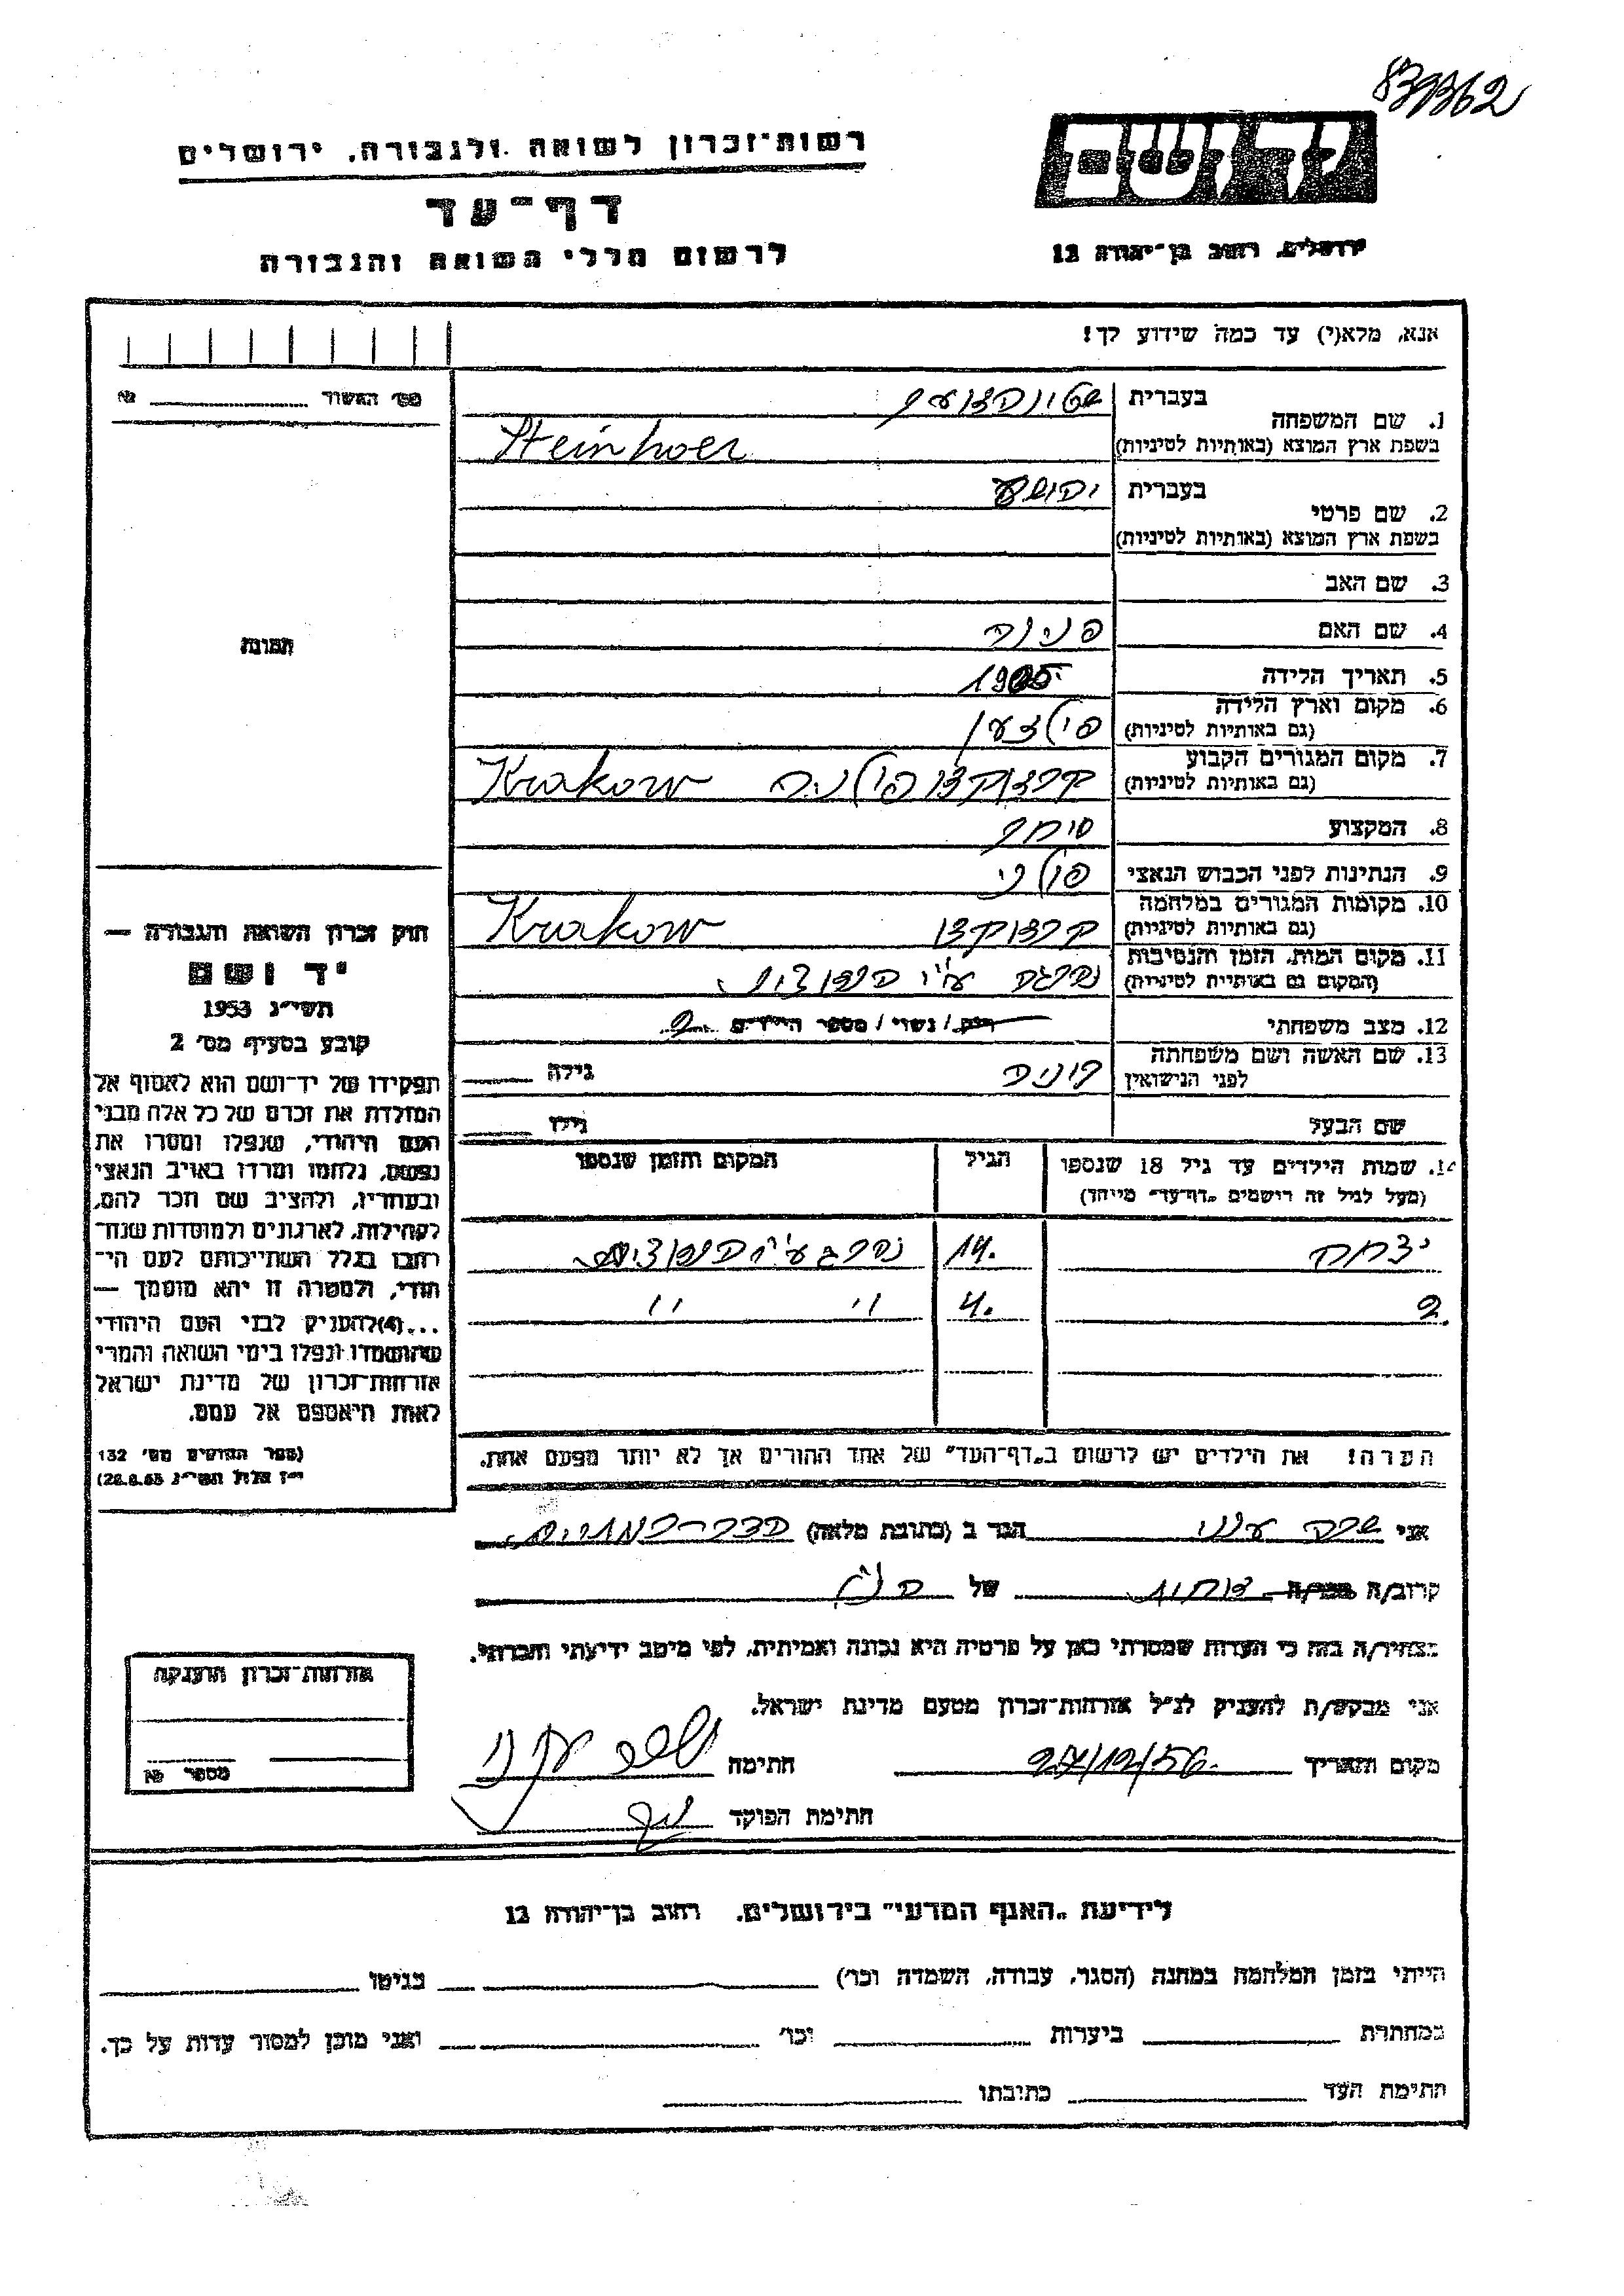 839362
יד ושם
ירושלים, רחוב בן־יהודה 12
רשות־זכרון לשואה ולגבורה, ירושלים
דף־עד
לרשום חללי השואה והגבורה
אנא, מלא(י) עד כמה שידוע לך!
מס׳ האשור №
1. שם המשפחה
בעברית
בשפת ארץ המוצא (באותיות לטיניות) Steinhoer
2. שם פרטי
בעברית יהושע
בשפת ארץ המוצא (באותיות לטיניות)
3. שם האב
4. שם האם
5. תאריך הלידה 1905
6. מקום וארץ הלידה
(גם באותיות לטיניות)
7. מקום המגורים הקבוע
(גם באותיות לטיניות) פולניה Krakow
8. המקצוע סוחר
9. הנתינות לפני הכבוש הנאצי פולני
10. מקומות המגורים במלחמה
(גם באותיות לטיניות) Krakow
11. מקום המות, הזמן והנסיבות
(המקום גם באותיות לטיניות) נהרג ע״י הנאצים
12. מצב משפחתי רוק / נשוי / מספר הילדים 2
13. שם האשה ושם משפחתה
לפני הנישואין גילה
שם הבעל גילו
14. שמות הילדים עד גיל 18 שנספו
(מעל לגיל זה רושמים „דף־עד״ מיוחד)
הגיל
המקום והזמן שנספו
יצחק 14. נהרג ע״י הנאצים
? 4. ״ ״
הערה! את הילדים יש לרשום ב„דף־העד״ של אחד ההורים אך לא יותר מפעם אחת.
תמונה
חוק זכרון השואה והגבורה —
יד ושם
תשי״ג 1953
קובע בסעיף מס׳ 2
תפקידו של יד־ושם הוא לאסוף אל
המולדת את זכרם של כל אלה מבני
העם היהודי, שנפלו ומסרו את
נפשם, נלחמו ומרדו באויב הנאצי
ובעוזריו, ולהציב שם וזכר להם,
לקהילות, לארגונים ולמוסדות שנח־
רבו בגלל השתייכותם לעם הי־
הודי, ולמטרה זו יהא מוסמך —
...(4)להעניק לבני העם היהודי
שהושמדו ונפלו בימי השואה והמרי
אזרחות־זכרון של מדינת ישראל
לאות היאספם אל עמם.
(ספר החוקים מס׳ 132
י״ז אלול תשי״ג 28.8.53)
אני הגר ב (כתובת מלאה)
קרוב/ה מכר/ה של הנ״ל
מצהיר/ה בזה כי העדות שמסרתי כאן על פרטיה היא נכונה ואמיתית, לפי מיטב ידיעתי והכרתי.
אני מבקש/ת להעניק לנ״ל אזרחות־זכרון מטעם מדינת ישראל.
מקום ותאריך 27/12/56 חתימה
חתימת הפוקד
אזרחות־זכרון הוענקה
מספר №
לידיעת „האגף המדעי״ בירושלים, רחוב בן־יהודה 12
הייתי בזמן המלחמה במחנה (הסגר, עבודה, השמדה וכו׳) בגיטו
במחתרת ביערות וכו׳ ואני מוכן למסור עדות על כך.
חתימת העד כתובתו